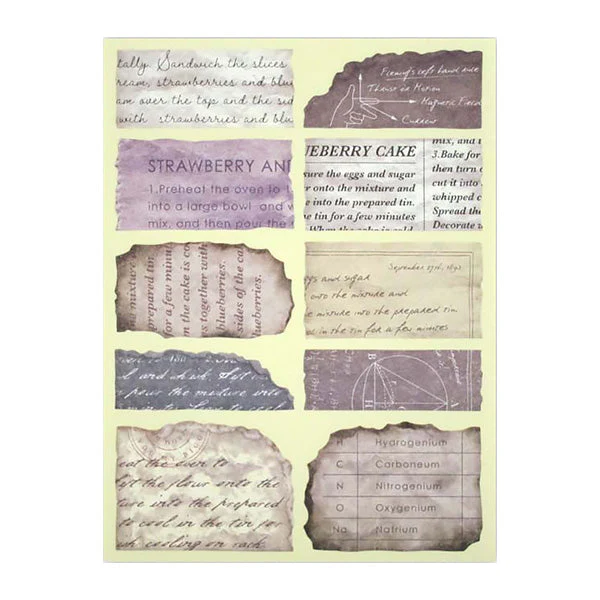 tally. Sandwich the slices
ream, strawberries and blue
am over the top and the sid
with strawberries and blue
Fleming's left hand rule
Thrust or Motion
Magnetic Field
Current
STRAWBERRY AN
1.Preheat the oven to 1
into a large bowl and w
mix, and then pour the
UEBERRY CAKE
sure the eggs and sugar
r onto the mixture and
he tin for a few minutes
When the cake is cold
mix, and t
3.Bake for
then turn o
cut it into
whipped c
Spread the
Decorate w
e mixture in
prepared tin.
for a few minu
n the cake is co
s together with
blueberries.
sides of the ca
lueberries.
September 27th, 1892
eggs and sugar
onto the mixture and
into the prepared tin
in the tin for a few minutes
l and whisk. Sift
n pour the mixture into
B
H
eat the oven to
ift the flour onto the
ture into the prepared
to cool in the tin for
sh cooling on rack.
H Hydrogenium
C Carboneum
N Nitrogenium
O Oxygenium
Na Natrium